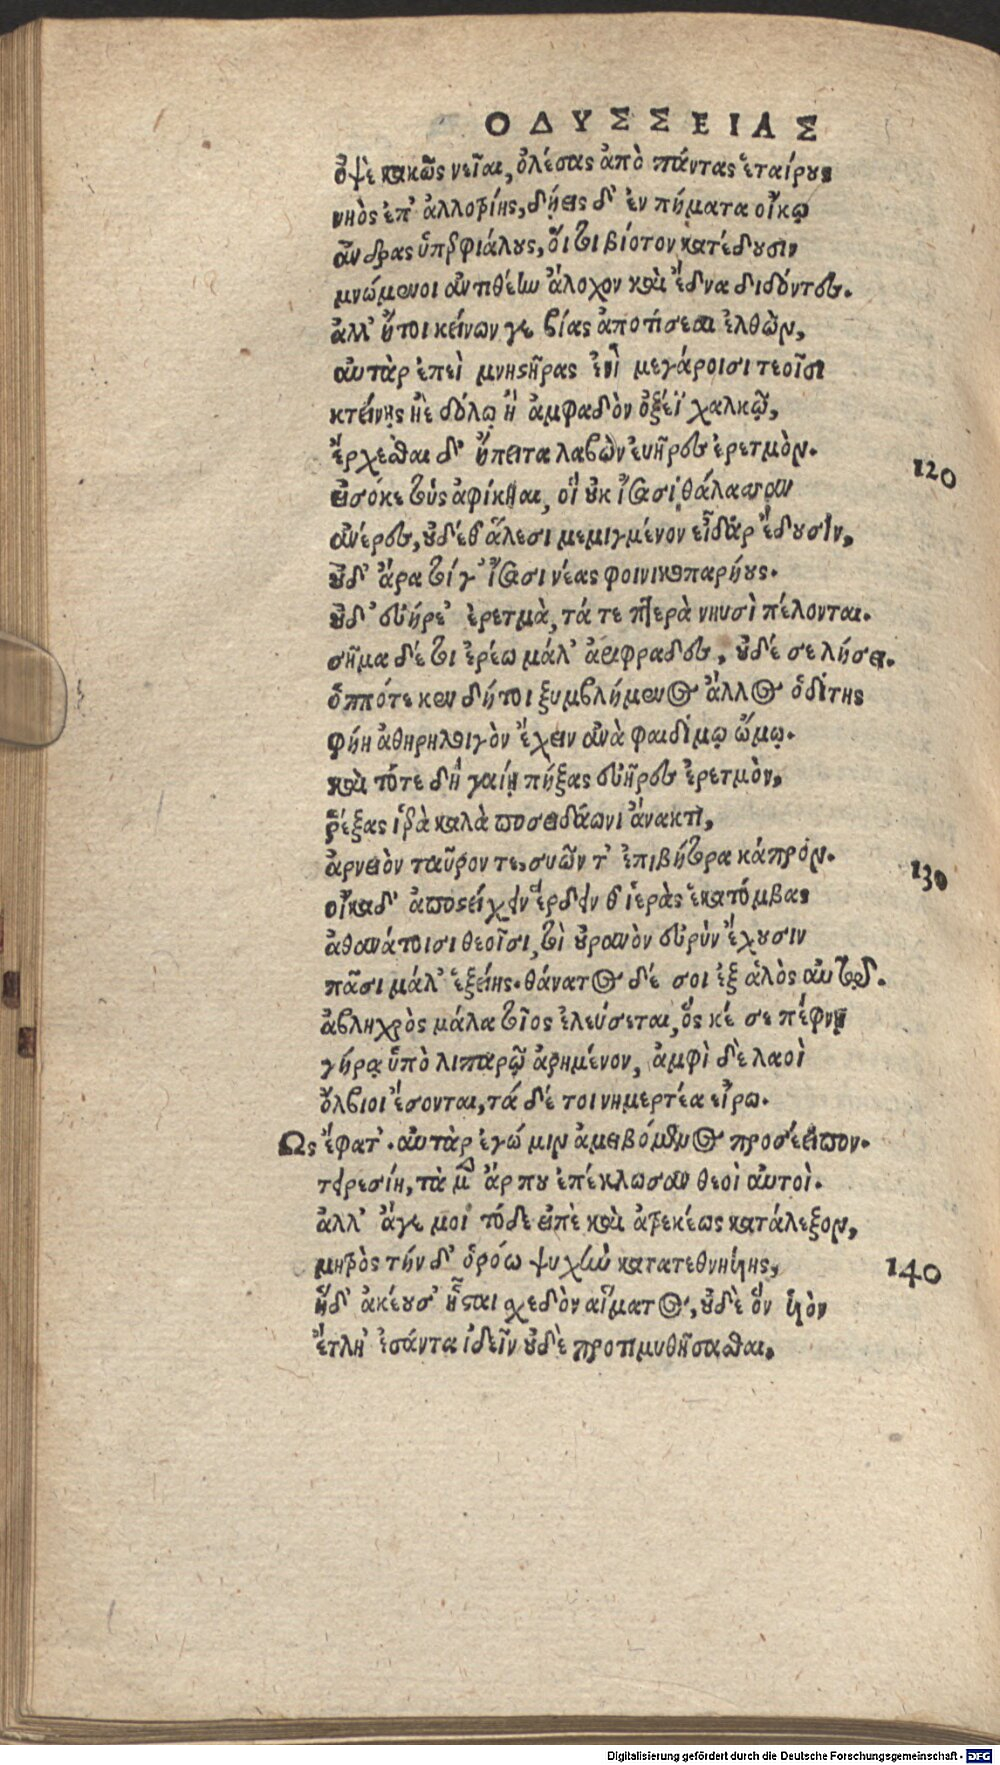 ΟΔΥΣΣΕΙΑΣ
ὀψὲ κακῶς νεῖαι, ὀλέσας ἀπὸ πάντας ἑταίρους
νηὸς ἐπ' ἀλλοτρίης, δήεις δ' ἐν πήματα οἴκῳ
ἄνδρας ὑπερφιάλους, οἵ τοι βίοτον κατέδουσιν
μνώμενοι ἀντιθέην ἄλοχον καὶ ἕδνα διδόντες.
ἀλλ' ἤτοι κείνων γε βίας ἀποτίσεαι ἐλθών,
αὐτὰρ ἐπεὶ μνηστῆρας ἐνὶ μεγάροισι τεοῖσι
κτείνῃς ἠὲ δόλῳ ἢ ἀμφαδὸν ὀξέϊ χαλκῷ,
ἔρχεσθαι δ' ἤπειτα λαβὼν ἐυῆρες ἐρετμόν.
120
εἰσόκε τοὺς ἀφίκηαι, οἳ οὐκ ἴσασι θάλασσαν
ἀνέρες, οὐδέ θ' ἅλεσι μεμιγμένον εἶδάρ ἔδουσιν,
οὐδ' ἄρα τοί γ' ἴσασι νέας φοινικοπαρήους.
οὐδ' εὐήρε' ἐρετμὰ, τά τε πτερὰ νηυσὶ πέλονται.
σῆμα δέ τοι ἐρέω μάλ' ἀειφραδες, οὐδέ σε λήσει.
ὁππότε κεν δή τοι ξυμβλήμενος ἄλλος ὁδίτης
φήη ἀθηρηλοιγὸν ἔχειν ἀνὰ φαιδίμῳ ὤμῳ.
καὶ τότε δὴ γαίῃ πήξας εὐῆρες ἐρετμὸν,
ῥέξας ἱερὰ καλὰ ποσειδάωνι ἄνακτι,
ἀρνειὸν ταῦρον τε, συῶν τ' ἐπιβήτορα κάπρον.
130
οἴκαδ' ἀποστείχειν ἔρδειν θ' ἱερὰς ἑκατόμβας
ἀθανάτοισι θεοῖσι, τοὶ οὐρανὸν εὐρὺν ἔχουσιν
πᾶσι μάλ' ἑξείης. θάνατος δέ σοι ἐξ ἁλὸς αὐτῷ.
ἀβληχρὸς μάλα τοῖος ἐλεύσεται, ὅς κέ σε πέφνῃ
γήρᾳ ὑπὸ λιπαρῷ ἀρημένον, ἀμφὶ δὲ λαοὶ
ὄλβιοι ἔσονται, τά δέ τοι νημερτέα εἴρω.
Ως ἔφατ'. αὐτὰρ ἐγώ μιν ἀμειβόμενος προσέειπον.
τειρεσίη, τὰ μὲν ἄρ που ἐπέκλωσαν θεοὶ αὐτοί.
ἀλλ' ἄγε μοι τόδε εἰπὲ καὶ ἀτρεκέως κατάλεξον,
μητρὸς τήν δ' ὁρόω ψυχὴν κατατεθνηίης,
140
ἥδ' ἀκέουσ' ἧσται σχεδὸν αἵματος, οὐδὲ ὃν υἱὸν
ἔτλη' ἐσάντα ἰδεῖν οὐδὲ προτιμυθήσασθαι.
Digitalisierung gefördert durch die Deutsche Forschungsgemeinschaft - DFG